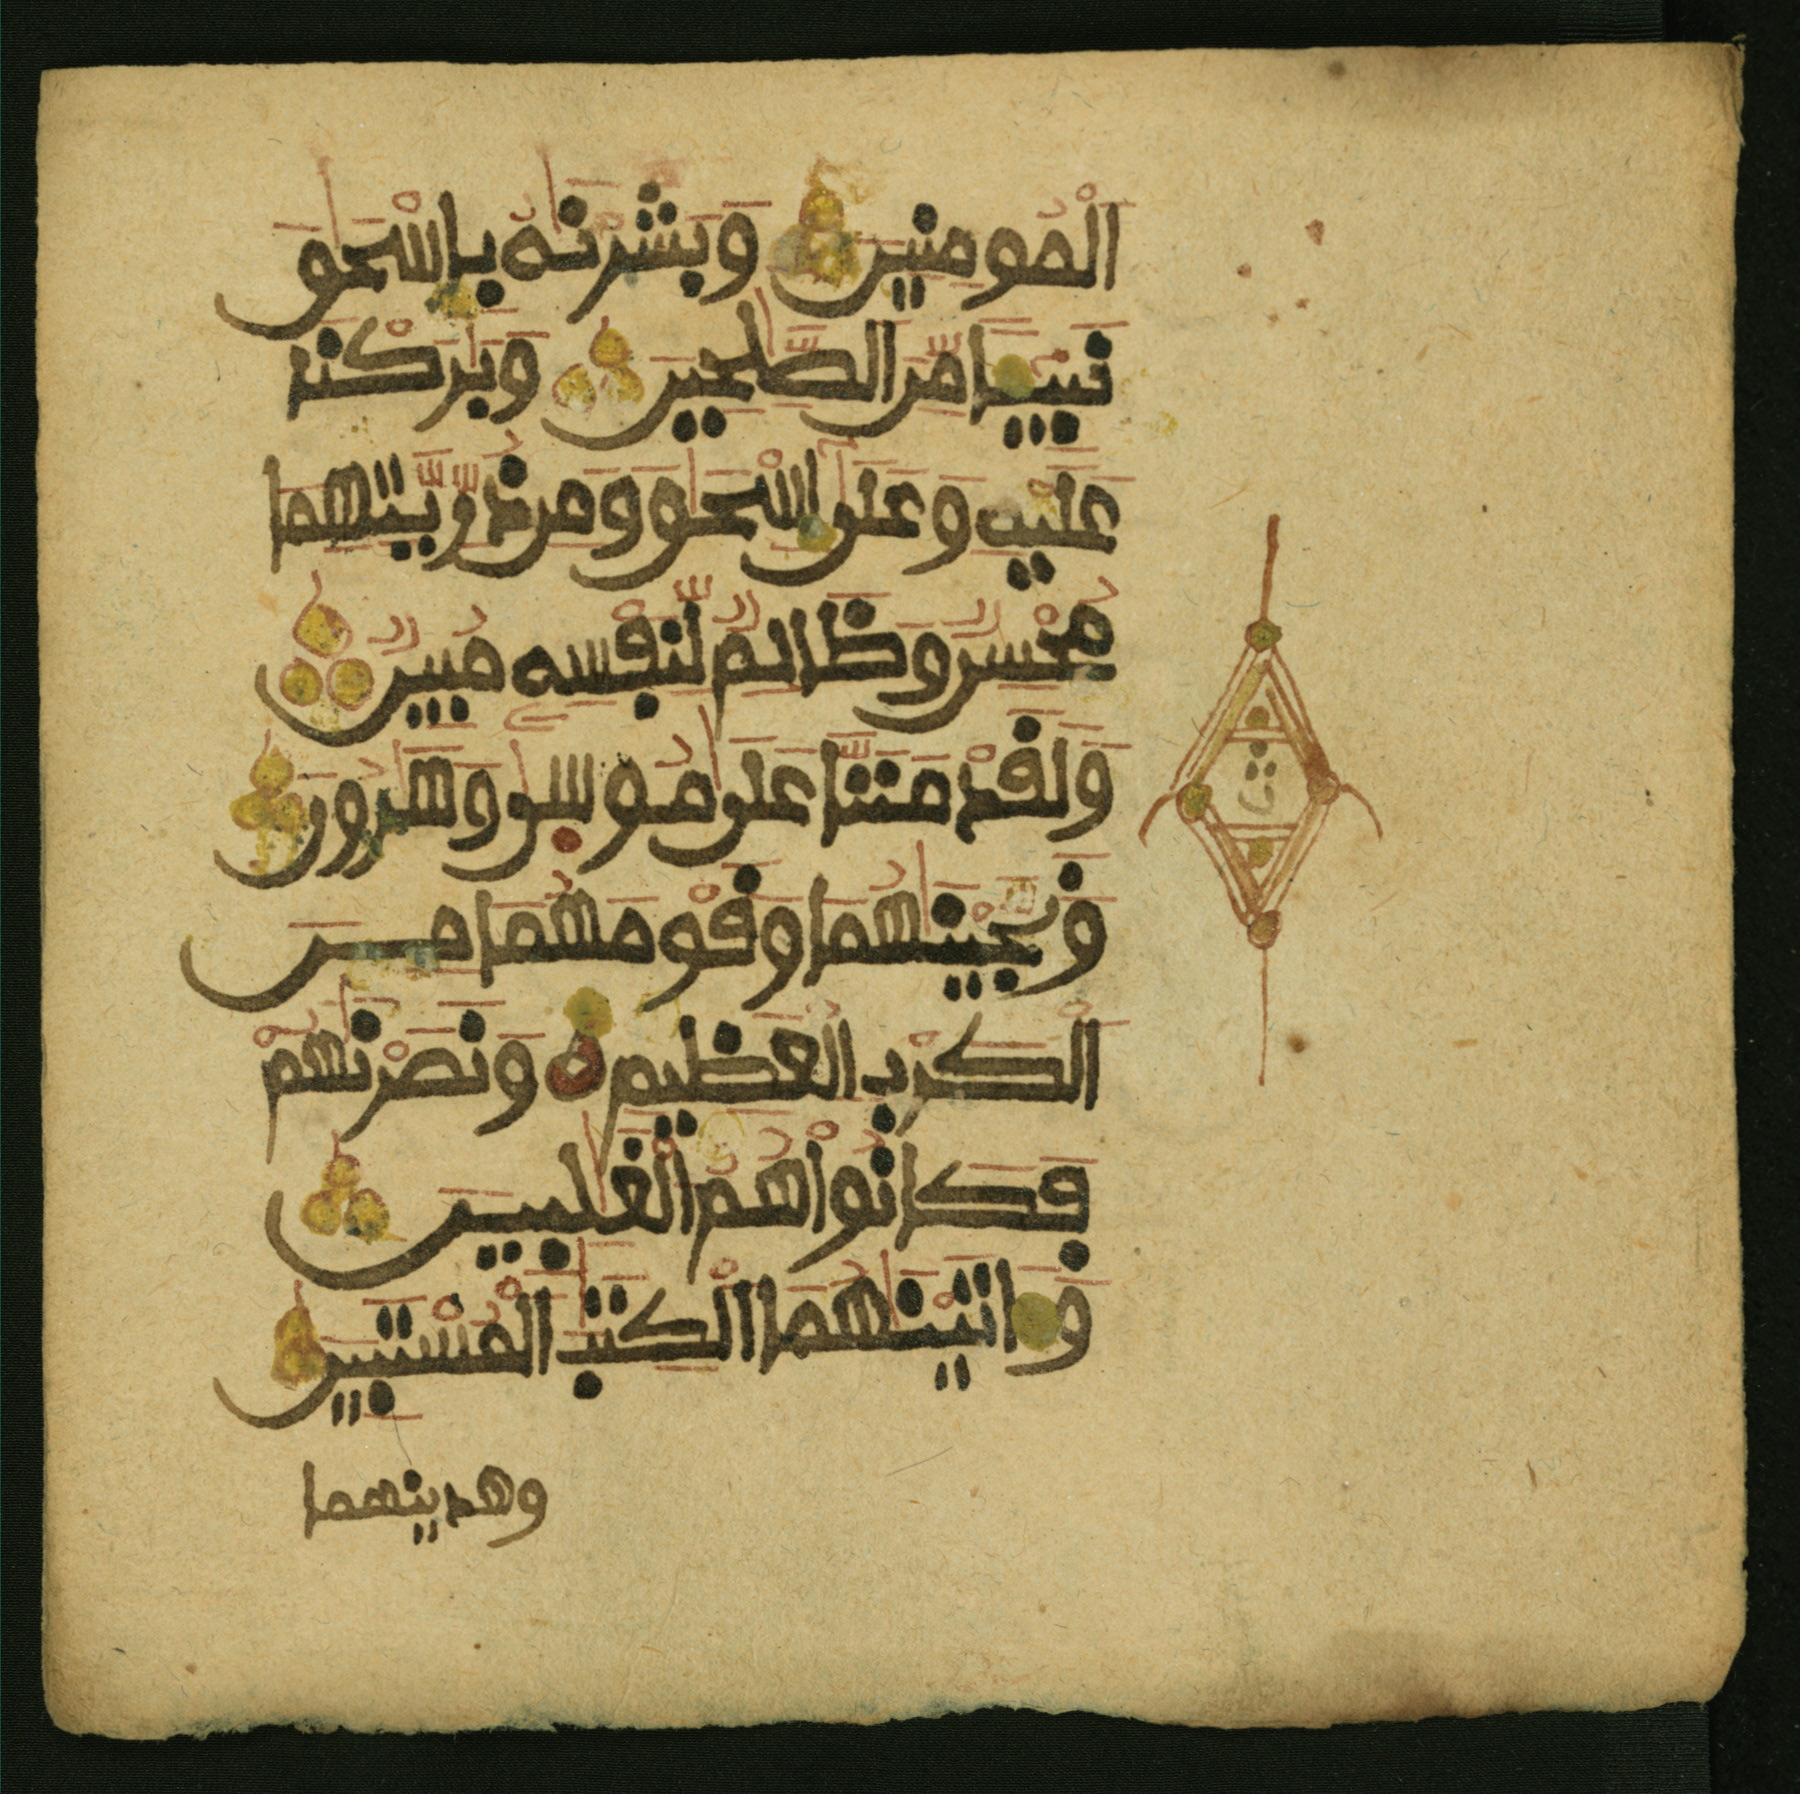 اَلْمُومِنِينَ وَبَشَّرْنَٰهُ بِإِسْحَٰقَ
نَبِيـًٔا مِّنَ اَلصَّٰلِحِينَ وَبَٰرَكْنَا
عَلَيْهِ وَعَلَىٰ إِسْحَٰقَ وَمِن ذُرِّيَّتِهِمَا
مُحْسِنٌ وَظَالِمٌ لِّنَفْسِهِ مُبِينٌ
وَلَقَدْ مَنَنَّا عَلَىٰ مُوسَىٰ وَهَٰرُونَ
وَنَجَّيْنَٰهُمَا وَقَوْمَهُمَا مِنَ
اَلْكَرْبِ اِلْعَظِيمِ وَنَصَرْنَٰهُمْ
فَكَانُواْ هُمُ اُلْغَٰلِبِينَ
وَءَاتَيْنَٰهُمَا اَلْكِتَٰبَ اَلْمُسْتَبِينَ
وهدينهما